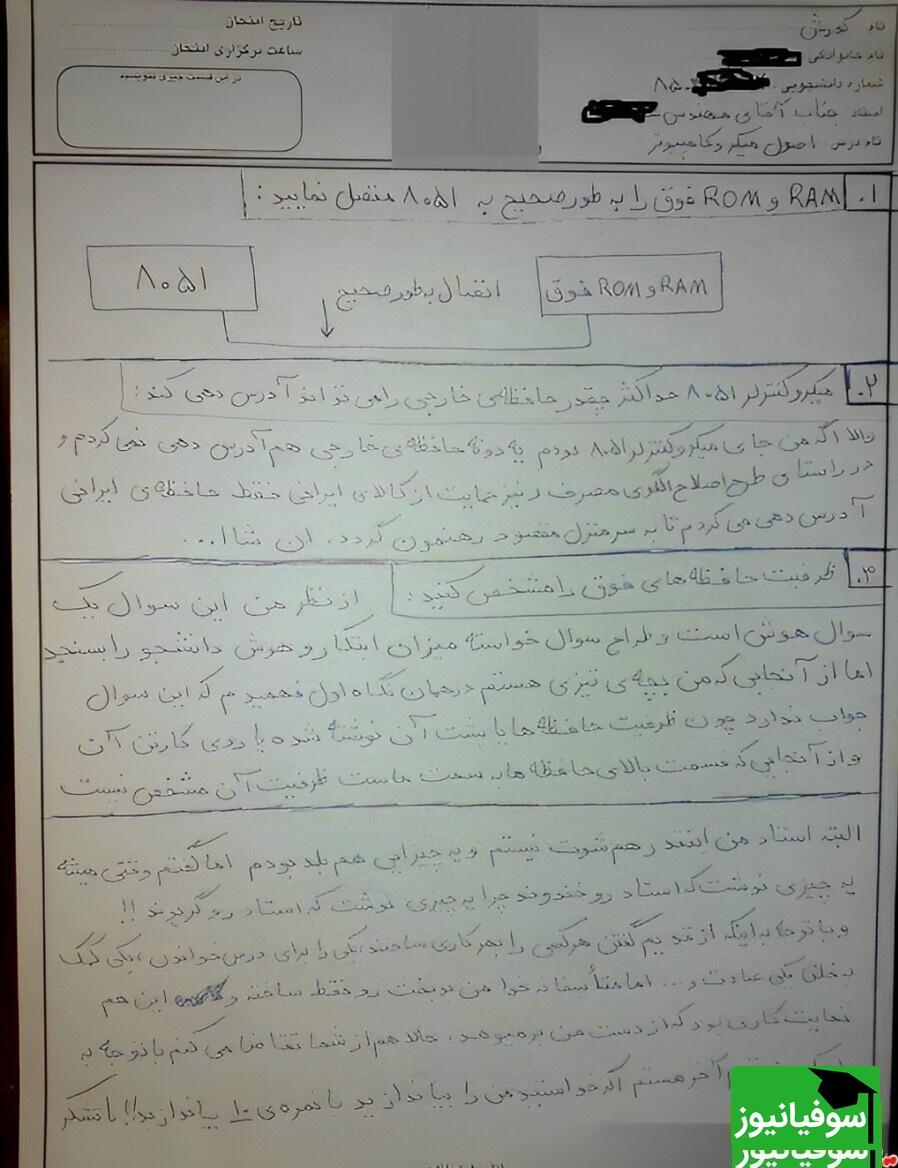 تاریخ امتحان
ساعت برگزاری امتحان
در این قسمت چیزی ننویسید
نام: کورش
نام خانوادگی
شماره دانشجویی: ۸۵۰
استاد جناب آقای مهندس
نام درس: اصول میکروکامپیوتر
۱. RAM و ROM فوق را به طور صحیح به ۸۰۵۱ متصل نمایید:
۸۰۵۱
اتصال به طور صحیح
RAM و ROM فوق
۲. میکروکنترلر ۸۰۵۱ حداکثر چقدر حافظه‌ی خارجی را می تواند آدرس دهی کند:
والا اگه من جای میکروکنترلر ۸۰۵۱ بودم یه دونه حافظه ی خارجی هم آدرس دهی نمی کردم و
در راستای طرح اصلاح الگوی مصرف و نیز حمایت از کالای ایرانی فقط حافظه ی ایرانی
آدرس دهی می کردم تا به سرمنزل مقصود رهنمون گردد. ان شاا...
۳. ظرفیت حافظه های فوق را مشخص کنید: از نظر من این سوال یک
سوال هوش است و طراح سوال خواسته میزان ابتکار و هوش دانشجو را بسنجد
اما از آنجایی که من بچه ی تیزی هستم در همان نگاه اول فهمیدم که این سوال
جواب ندارد چون ظرفیت حافظه ها یا پشت آن نوشته شده یا روی کارتن آن
و از آنجایی که قسمت بالای حافظه ها به سمت ماست ظرفیت آن مشخص نیست
البته استاد من اینقدر هم شوت نیستم و یه چیزایی هم بلد بودم اما گفتم وقتی میشه
یه چیزی نوشت که استاد رو خندوند چرا یه چیزی نوشت که استاد رو گریوند !!
و با توجه به اینکه از قدیم گفتن هر کسی را بهر کاری ساختند، یکی را برای درس خواندن، یکی کمک
به خلق یکی عبادت و ... اما متأسفانه خدا من بدبخت رو فقط ساخته و این هم
نهایت کاری بود که از دست من بر میومد. حالا هم از شما تقاضا می کنم با توجه به
آخر هستم اگه خواستید من را بیاندازید با نمره ی ۱۰ بیاندازید!! با تشکر
سوفیانیوز
سوفیانیوز